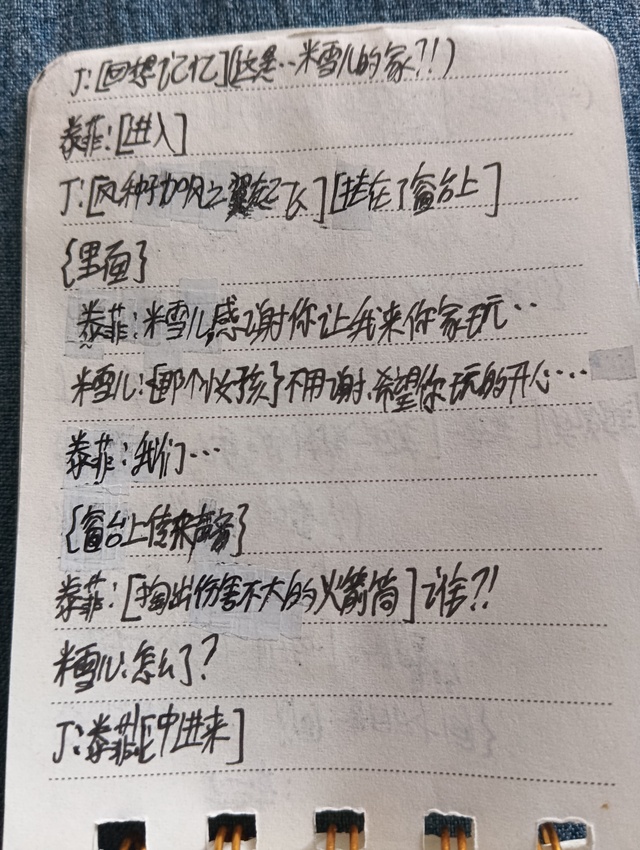 J:[回想记忆](这是··米雪儿的家?!)
泰菲:[进入]
J:[风种子加风之翼起飞][挂在了窗台上]
{里面}
泰菲:米雪儿,感谢你让我来你家玩··
米雪儿:{那个女孩}不用谢.希望你玩的开心···
泰菲:我们···
{窗台上传来声音}
泰菲:[掏出伤害不大的火箭筒]谁?!
米雪儿:怎么了?
J:泰菲[冲进来]